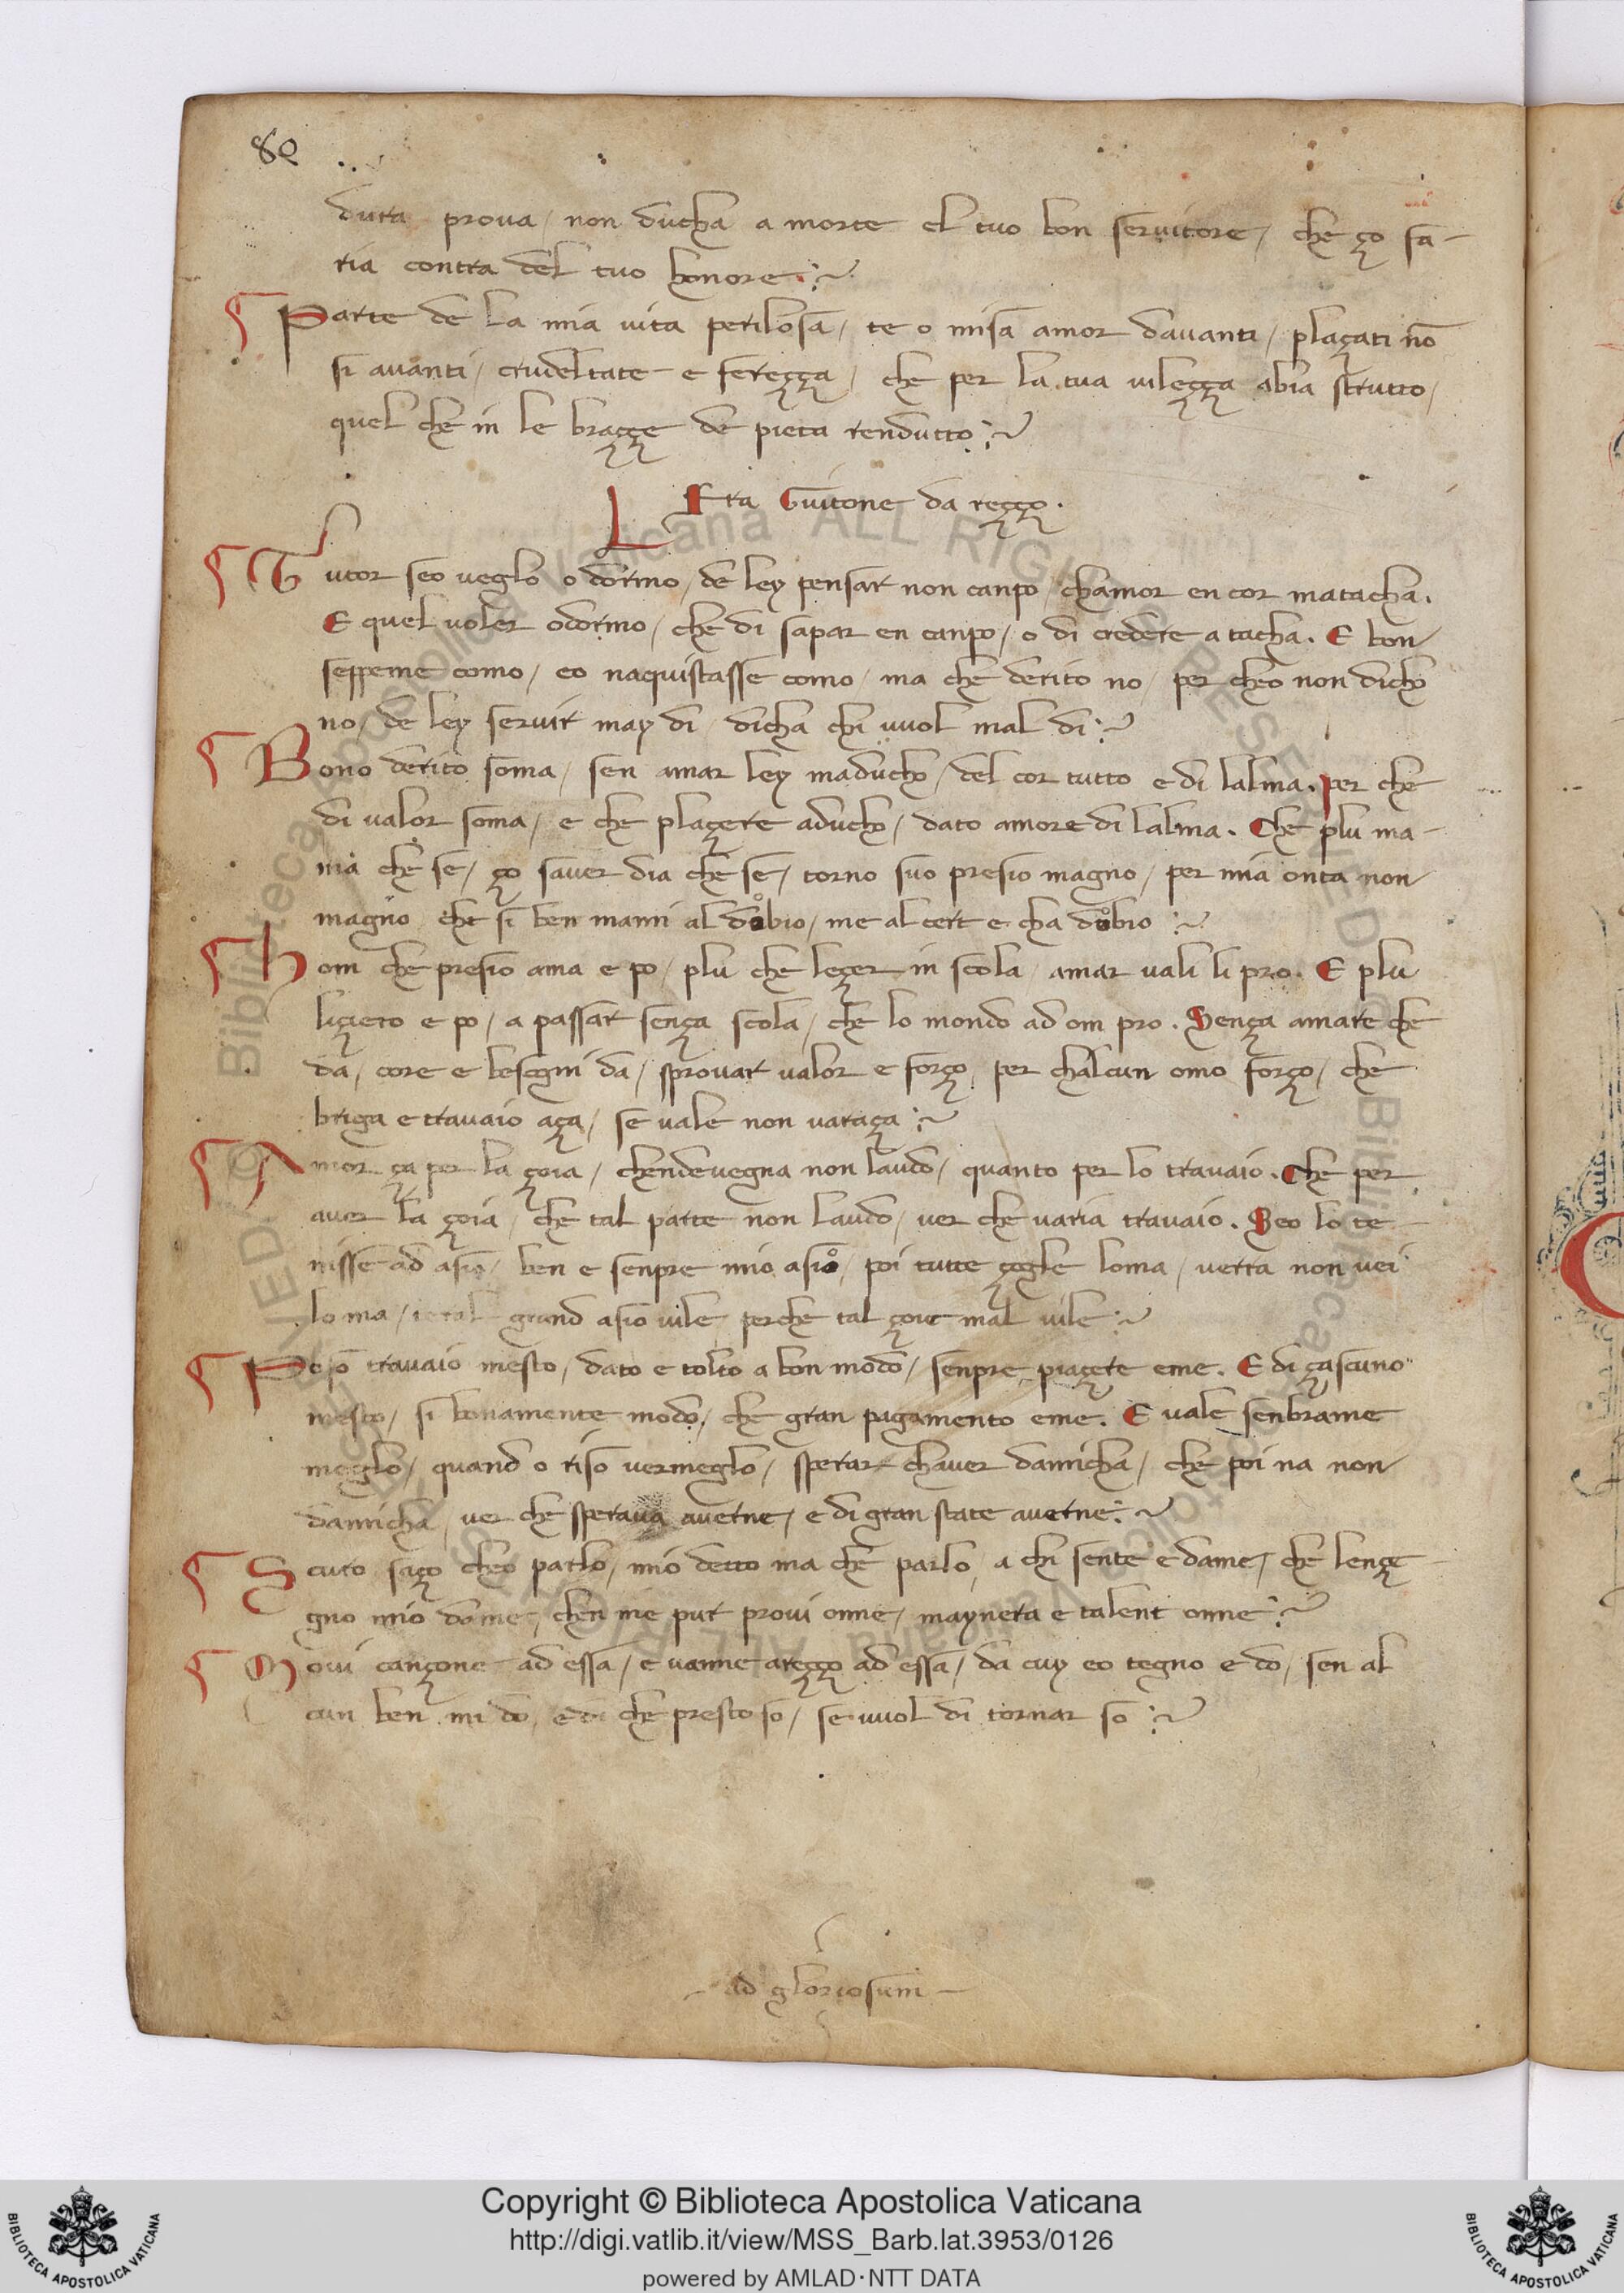 80
dura prova / non ducha a morte el tuo bon servitore / che ço sa-
ria contra del tuo honore
Parte de la mia vita perilosa / te o misa amor davanti / plaçati nō
si avanti / crudeltate e fereçça / che per la tua vileçça abia strutto /
quel che in le braççe de pieta rendutto
Fra Guitone da reçço.
Tutor seo veglo o dormo / de ley pensar non canpo / chamor en cor matacha.
E quel voler odormo / che di sapar en canpo / o di credere a tacha. E bon
seppeme como / eo naquistasse como / ma che derito no / per cheo non dicho
no / de ley servir may di / dicha chi vuol mal di
Bono derito soma / sen amar ley maducho / del cor tutto e di lalma. per che
di valor soma / e che plaçere aducho / dato amore di lalma. Che plu ma-
ma che se / ço saver dia che se / torno suo presio magno / per mia onta non
magno che si ben mami al dobio / me al cert e cha dobio
hom che presio ama e po / plu che leçer in scola / amar vali li pro. E plu
liçiero e po / a passar sença scola / che lo mondo ad om pro. Sença amare che
da / core e besogni da / sprovar valor e forço / per chalcun omo forço / che
briga e travaio aça / se vale non varaça
Amor ça per la çoia / chendevegna non laudo / quanto per lo travaio. Che per
aver la çoia / che tal parte non laudo / ver che varia travaio. Seo lo te
nisse ad asio / ben e senpre mio asio / poi tutte çogle loma / verra non vei
lo ma / grand asio vile perche tal çove mal vile
Poso travaio mesto / dato e tolto a bon modo / senpre piaçere eme. E di çascuno
mesto / si bonamente modo / che gran pagamento eme. E vale senbrame
meglo / quand o riso vermeglo / sperar chaver damicha / che poi na non
damicha / ver che sperava averne / e di gran state averne
Scuro saço cheo parlo / mio detto ma che parlo / a chi sente e dame / che lençe
gno mio dame / chen me pur provi onne / maynera e talent onne
Movi cançone ad essa / e vanne areçço ad essa / da cuy eo tegno e do / sen al
cun ben mi do / e di che presto so / se vuol di tornar so
- ad gloriosum -
Copyright © Biblioteca Apostolica Vaticana
http://digi.vatlib.it/view/MSS_Barb.lat.3953/0126
powered by AMLAD·NTT DATA
BIBLIOTECA APOSTOLICA VATICANA
BIBLIOTECA APOSTOLICA VATICANA